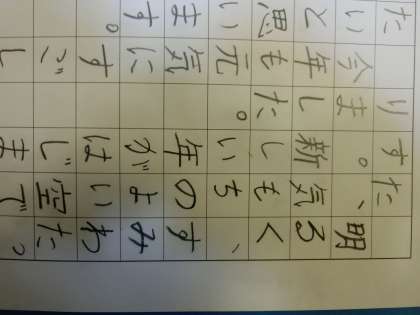 明るく、すみわたっ
た、気もちのよい空で
す。新しい年がはじま
りました。
今年も元気にすごし
たいと思います。